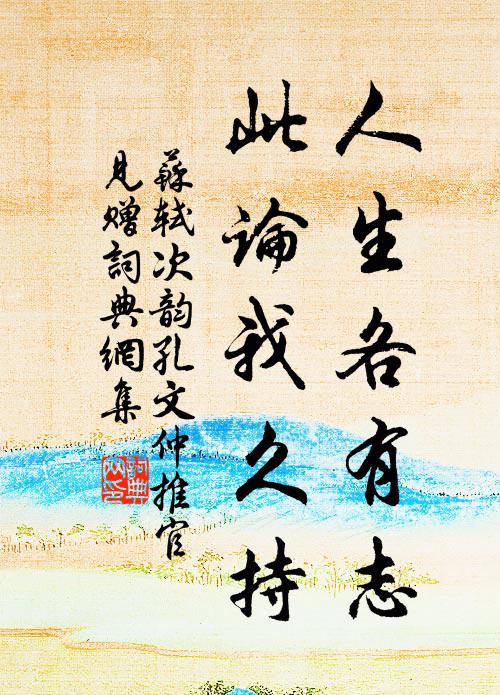 人生各有志
此論我久持
蘇軾次韵孔文仲推官
見赠詞典網集